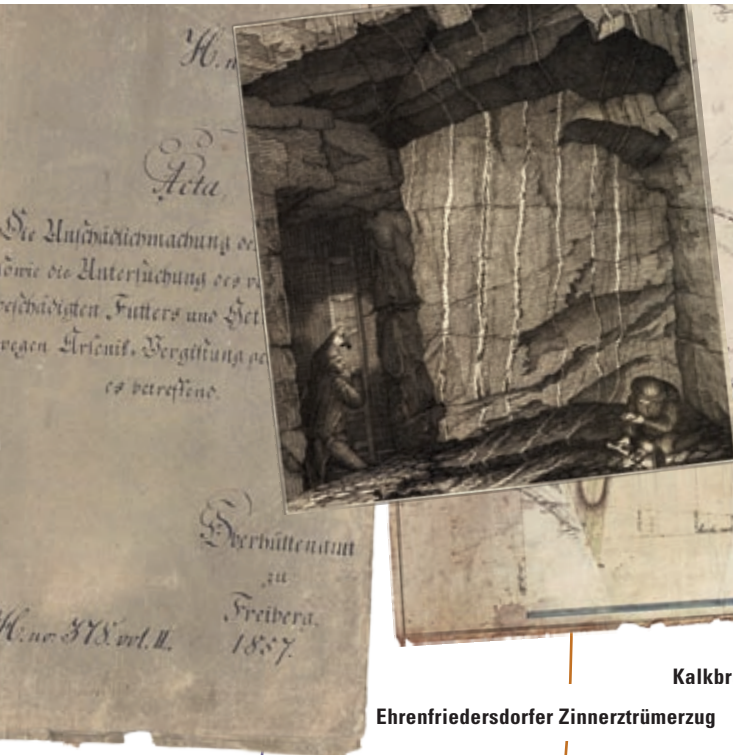 H. n
Acta,
Die Unschädlichmachung de
sowie die Untersuchung des
beschädigten Futters und
wegen Arsenik-Vergiftung
es betreffend.
Oberhüttenamt
zu
Freiberg.
1857.
H. no. 378. vol. II.
Kalkbr
Ehrenfriedersdorfer Zinnerztrümerzug